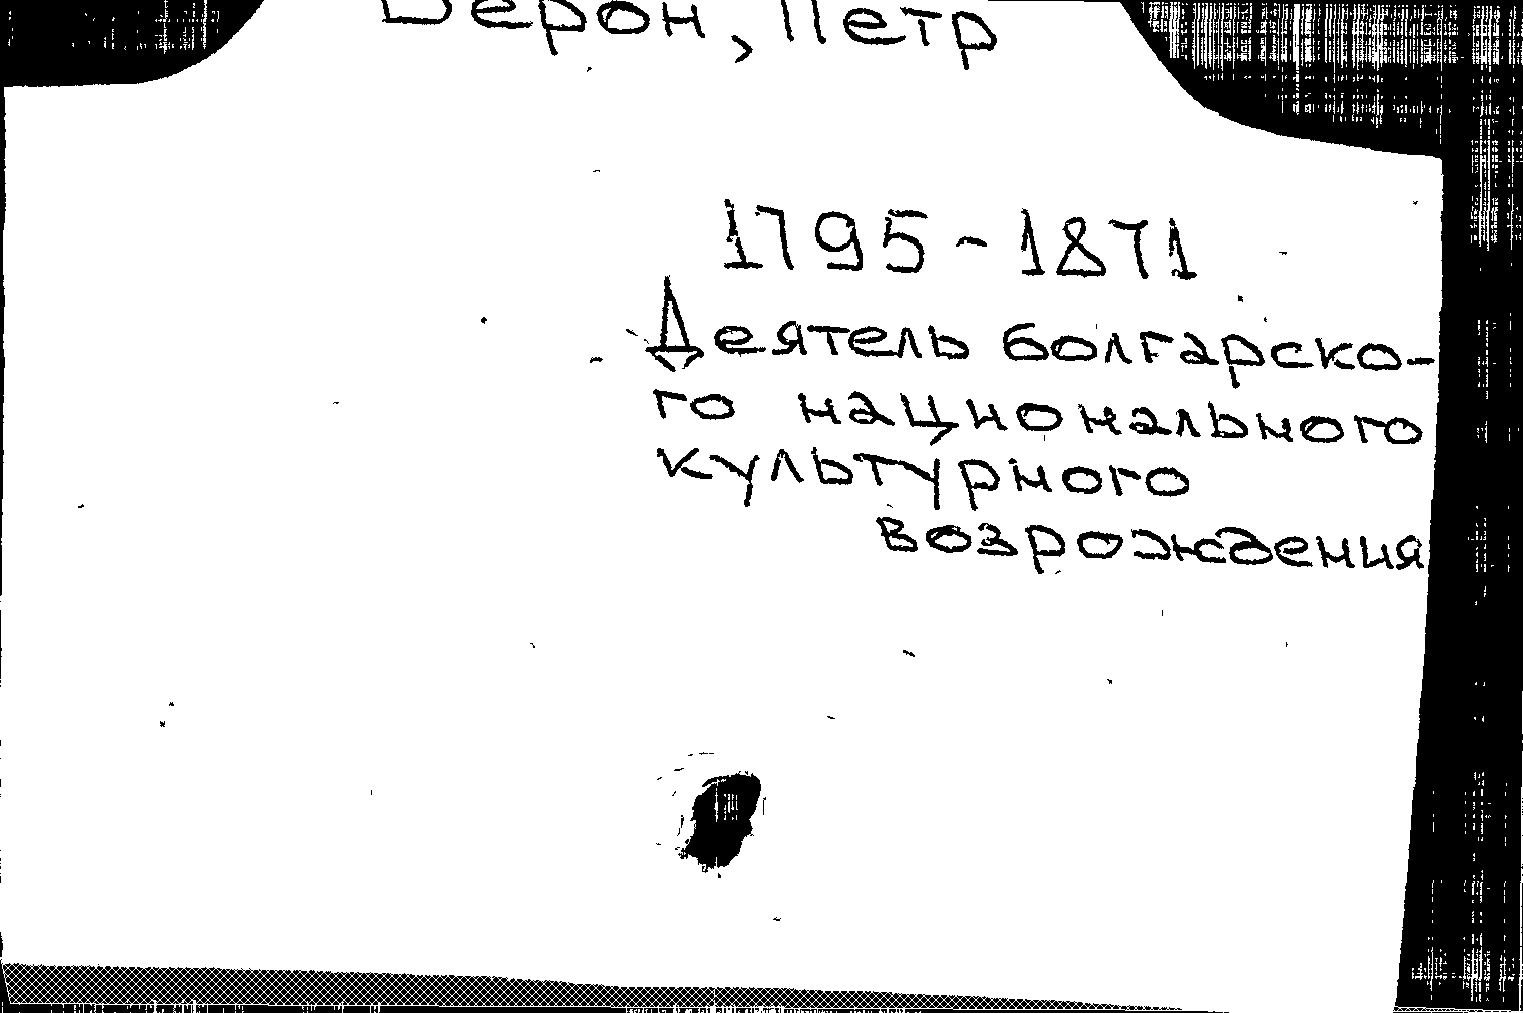 Берон, Петр
1795-1871
Деятель болгарско-
го национального
культурного
возрождения